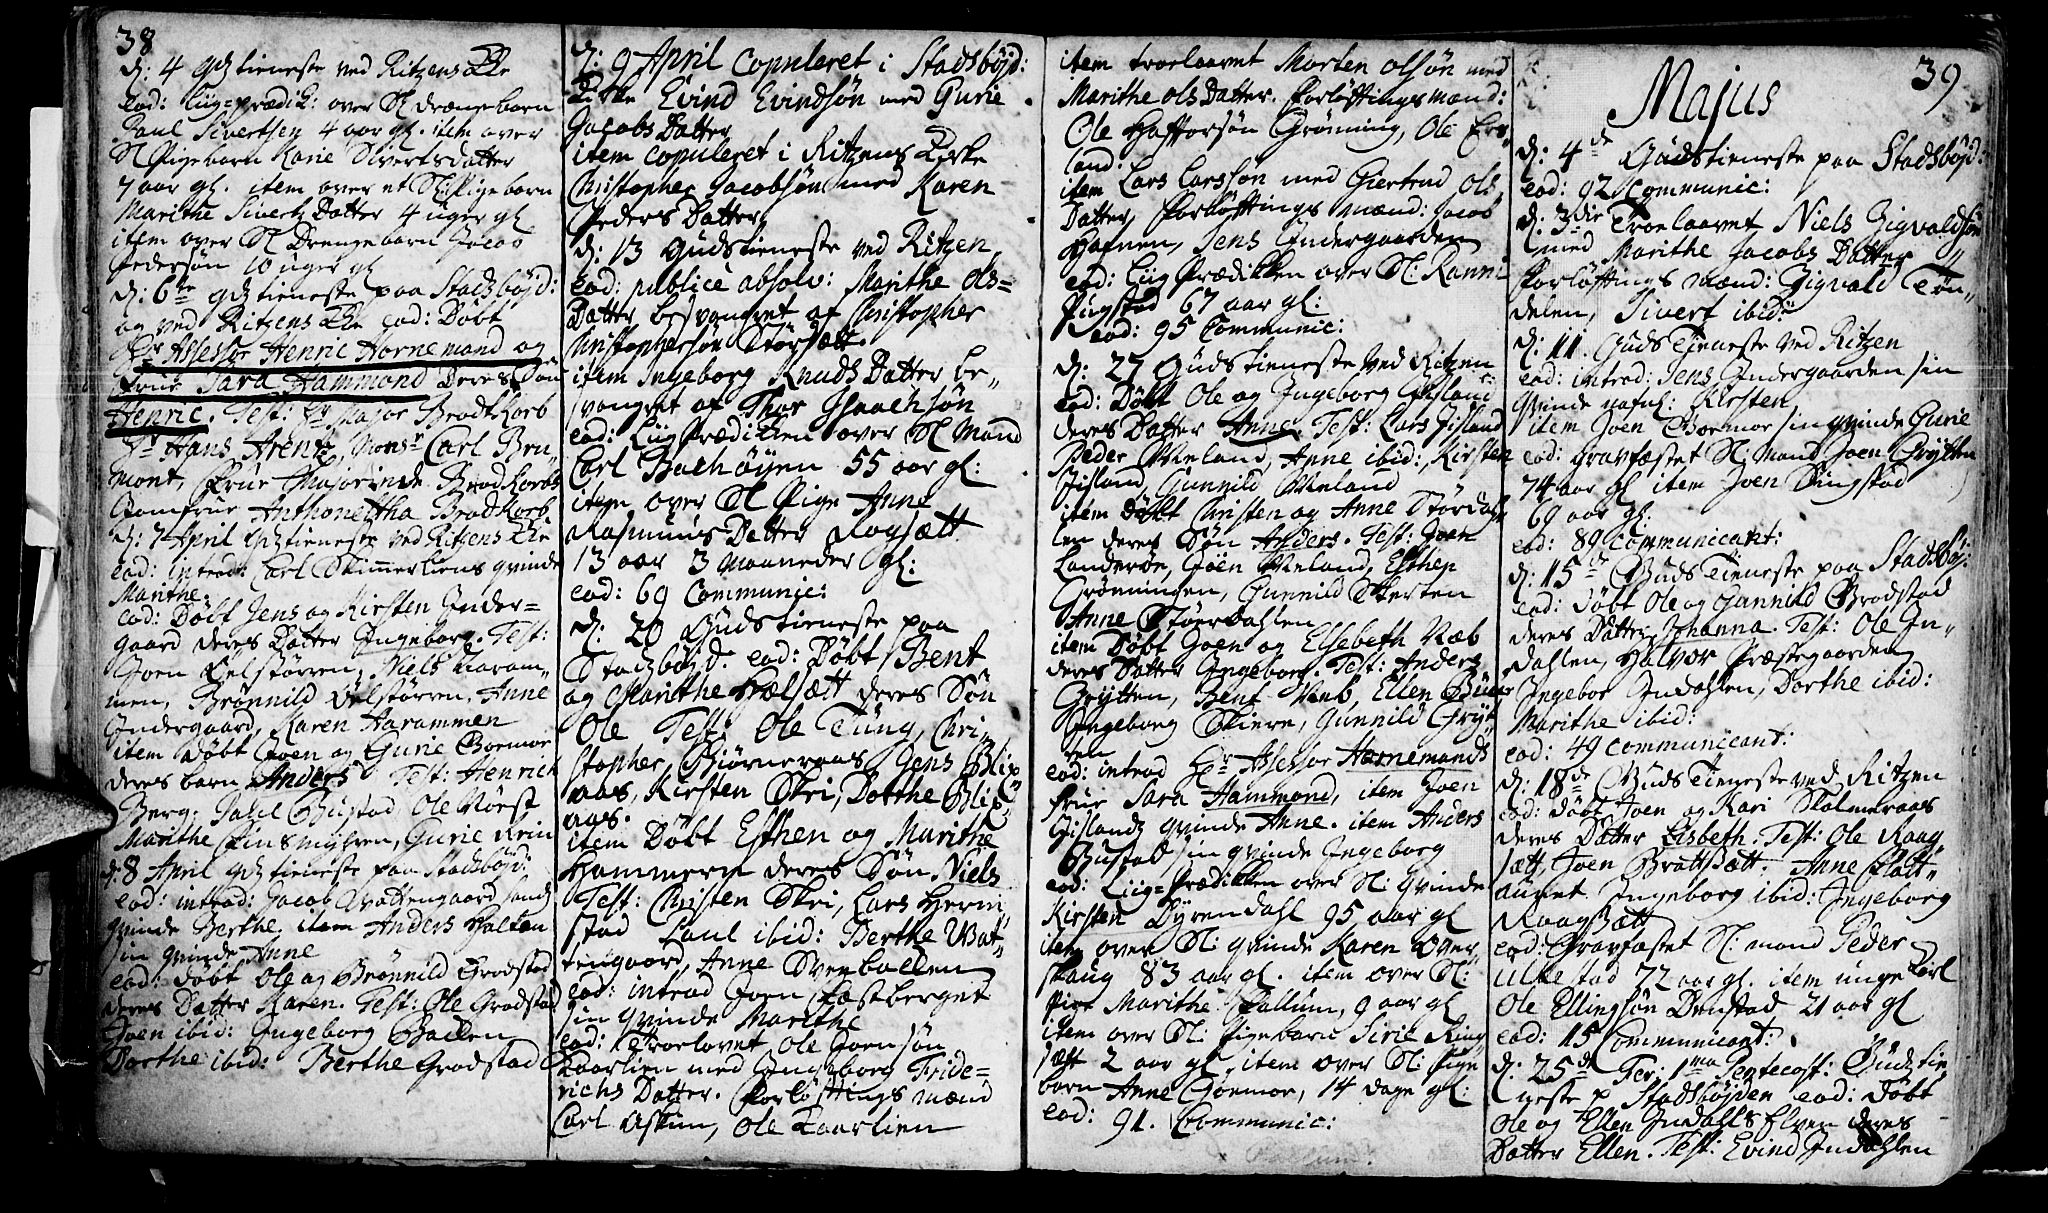 38
d: 4 gdstieneste ved Ritzens Kke
eod: Liig=prædik: over Sl drængebarn
Paul Sivertsen 4 aar gl. item over
Sl Pigebarn Karie Sivertsdatter
7 aar gl. item over et Sl: Pigebarn
Marithe Sivertz Datter 4 uger gl
item over Sl Drengebarn Jacob
Pedersøn 10 uger gl
d: 6te gdstieneste paa Stadsbøjd:
og ved Ritzens Kke eod: Døbt
Hr Assessor Henric Hornemand og
Frue Sara Hammond deres Søn
Henric. Test: Hr Major Brodtkorb
Hr Hans Arentz, Monsr Carl Bru,,
mont, Frue Majorinde Brodtkorbs
Jomfrue Anthonettha Brodtkorb
d: 7 April gdstieneste ved Ritzens Kke
eod: introd: Carl Skimmerliens qvinde
Marithe.
eod: Døbt Jens og Kirsten Inder=
gaard deres Datter Ingeborg. Test:
Joen Velstørren, Niels Haram,,
men, Brønnild Velstørren. Anne
Indergaard, Karen Harammen
item Døbt Joen og Gurie Goemor
deres barn Anders Test: Henrich
Berg. Paul Bustad, Ole Vørset
Marithe Finsmyhren, Gurie Rein
d: 8 April gdstieneste paa Stadsbøjd:
eod: introd: Jacob Vrattengaard sands
qvinde Berthe. item Anders Halten
sin qvinde Anne
eod: døbt Ole og Brønnild Grodstad
deres Datter Karen. Test: Ole Grodstad
Joen ibid: Ingeborg Ballen
Dorthe ibid: Berthe Grodstad
d: 9 April Copuleret i Stadsbøjd:
Kirke Evind Evindsøn med Gurie
Jacobs Datter
item Copuleret i Ritzens Kirke
Christopher Jacobsøn med Karen
Peders Datter
d: 13 Gudstieneste ved Ritzen
eod: publice absolv: Marithe Ols=
Datter besvangret af Christopher
Christophersøn Størsætt.
item Ingeborg Knuds Datter be,,
svangret af Thor Isaachsøn
eod: Liig Prædiken over Sl Mand
Carl Bachøyen 55 aar gl:
item over Sl Pige Anne
Rasmuus Datter Rogsætt
13 aar 3 Maaneder gl:
eod: 69 Communic:
d: 20 Gudstieneste paa
Stadsbøjd. eod: Døbt Bent
og Marithe Hælsætt deres Søn
Ole Test: Ole Tung, Chri,,
stopher, Biørneraas Jens Blix
aas, Kirsten Skri, Dorthe Blix
aas.
item Døbt Esthen og Marithe
Hammern deres Søn Niels
Test: Christen Skri, Lars Herm
stad Laul ibid: Berthe Wat,,
tengaard, Anne Sveeballen
eod: introd Joen Fæstberget
sin qvinde Marithe
eod: Troelovet Ole Joensøn
Kaarlien med Ingeborg Fride=
richs Datter. Forløftings mænd
Carl Askim, Ole Kaarlien
item troelaavet Morten Olsøn med
Marithe Ols Datter. Forløftings mænd:
Ole Hafftorsøn Grønning, Ole Ers,,
land:
item Lars Larssøn med Giertrud Ols
Datter, Forløftings mænd: Jacob
Hafnen, Jens Indergaarden
eod: Liig Prædikken over Sl: Ranni
Pugstad 67 aar gl:
eod: 95 Communic:
d: 27 Gudstieneste ved Ritzen
eod: Døbt Ole og Ingeborg Gisland
deres Datter Anne. Test: Lars Gisland
Peder Meland, Anne ibid:, Kirsten
Gisland, Gunnild Meland
item døbt Christen og Anne Størdah,,
len deres Søn Anders. Test: Joen
Landerøe, Joen Meland, Esthen
Grønningen, Gunnild Skerten
Anne Størdahlen
item Døbt Joen og Elsebeth Næb
deres Datter Ingeborg. Test: Anders
Grytten, Bent Næb, Ellen Buer
Ingeborg Skiere, Gunnild Gryt
ten
eod: introd Hr Assessor Hornemands
Frue Sara Hammond, item Joen
Gislands qvinde Anne. item Anders
Bustad sin qvinde Ingeborg
eod: Liig=Prædikken over Sl: Qvinde
Kirsten Dyrendahl 95 aar gl
item over Sl: qvinde Karen Over
skaug 83 aar gl. item over Sl:
Pige Marithe Fallum, 9 aar gl
item over Sl: Pigebarn Sirie Ring
sett 2 aar gl, item over Sl: Pige
barn Anne Goemor, 14 dage gl:
eod:
91. Communic:
39
Majus
d: 4de Gudstieneste paa Stadsbøjd:
eod: 92 Communic:
d: 3die Troelaavet Niels Zigvaldsøn
med Marithe Jacobs Datter
Forløftings mænd: Zigvald Tøn,,
delen, Sivert ibid:
d: 11. Guds Tieneste ved Ritzen
eod: introd: Jens Indergaarden sin
Qvinde nafnl: Kirsten
item Joen Goemor sin qvinde Gurie
eod: Gravfæstet Sl: mand Joen Grytten
74 aar gl item Joen Singstad
69 aar gl.
eod: 89 Communicant:
d: 15de Guds Tieneste paa Stadsbøj:
eod: Døbt Ole og Gunnild Brodstad
deres Datter Johanna. Test: Ole In,,
dahlen, Halvor Præstegaarden
Ingebor Indahlen, Dorthe ibid:
Marithe ibid:
eod: 49 Communicant:
d: 18de Guds Tieneste ved Ritzen
eod: Døbt Joen og Kari Skolmeraas
deres Datter Elsbeth. Test: Ole Raag
sætt, Joen Brattsætt. Anne Flatt,,
aunet Ingeborg ibid: Ingeborg
Raagsætt
eod: Gravfæstet Sl: mand Peder
Ulkestad 72 aar gl. item unge Karl
Ole Ellingsøn Denstad 21 aar gl
eod: 15 Communicant:
d: 25de Fer: 1ma Pentecost: Gudstie,,
neste p Stadsbøjden eod: Døbt
Ole og Ellen Indahls Elven deres
Datter Ellen. Test: Evind Indahlen